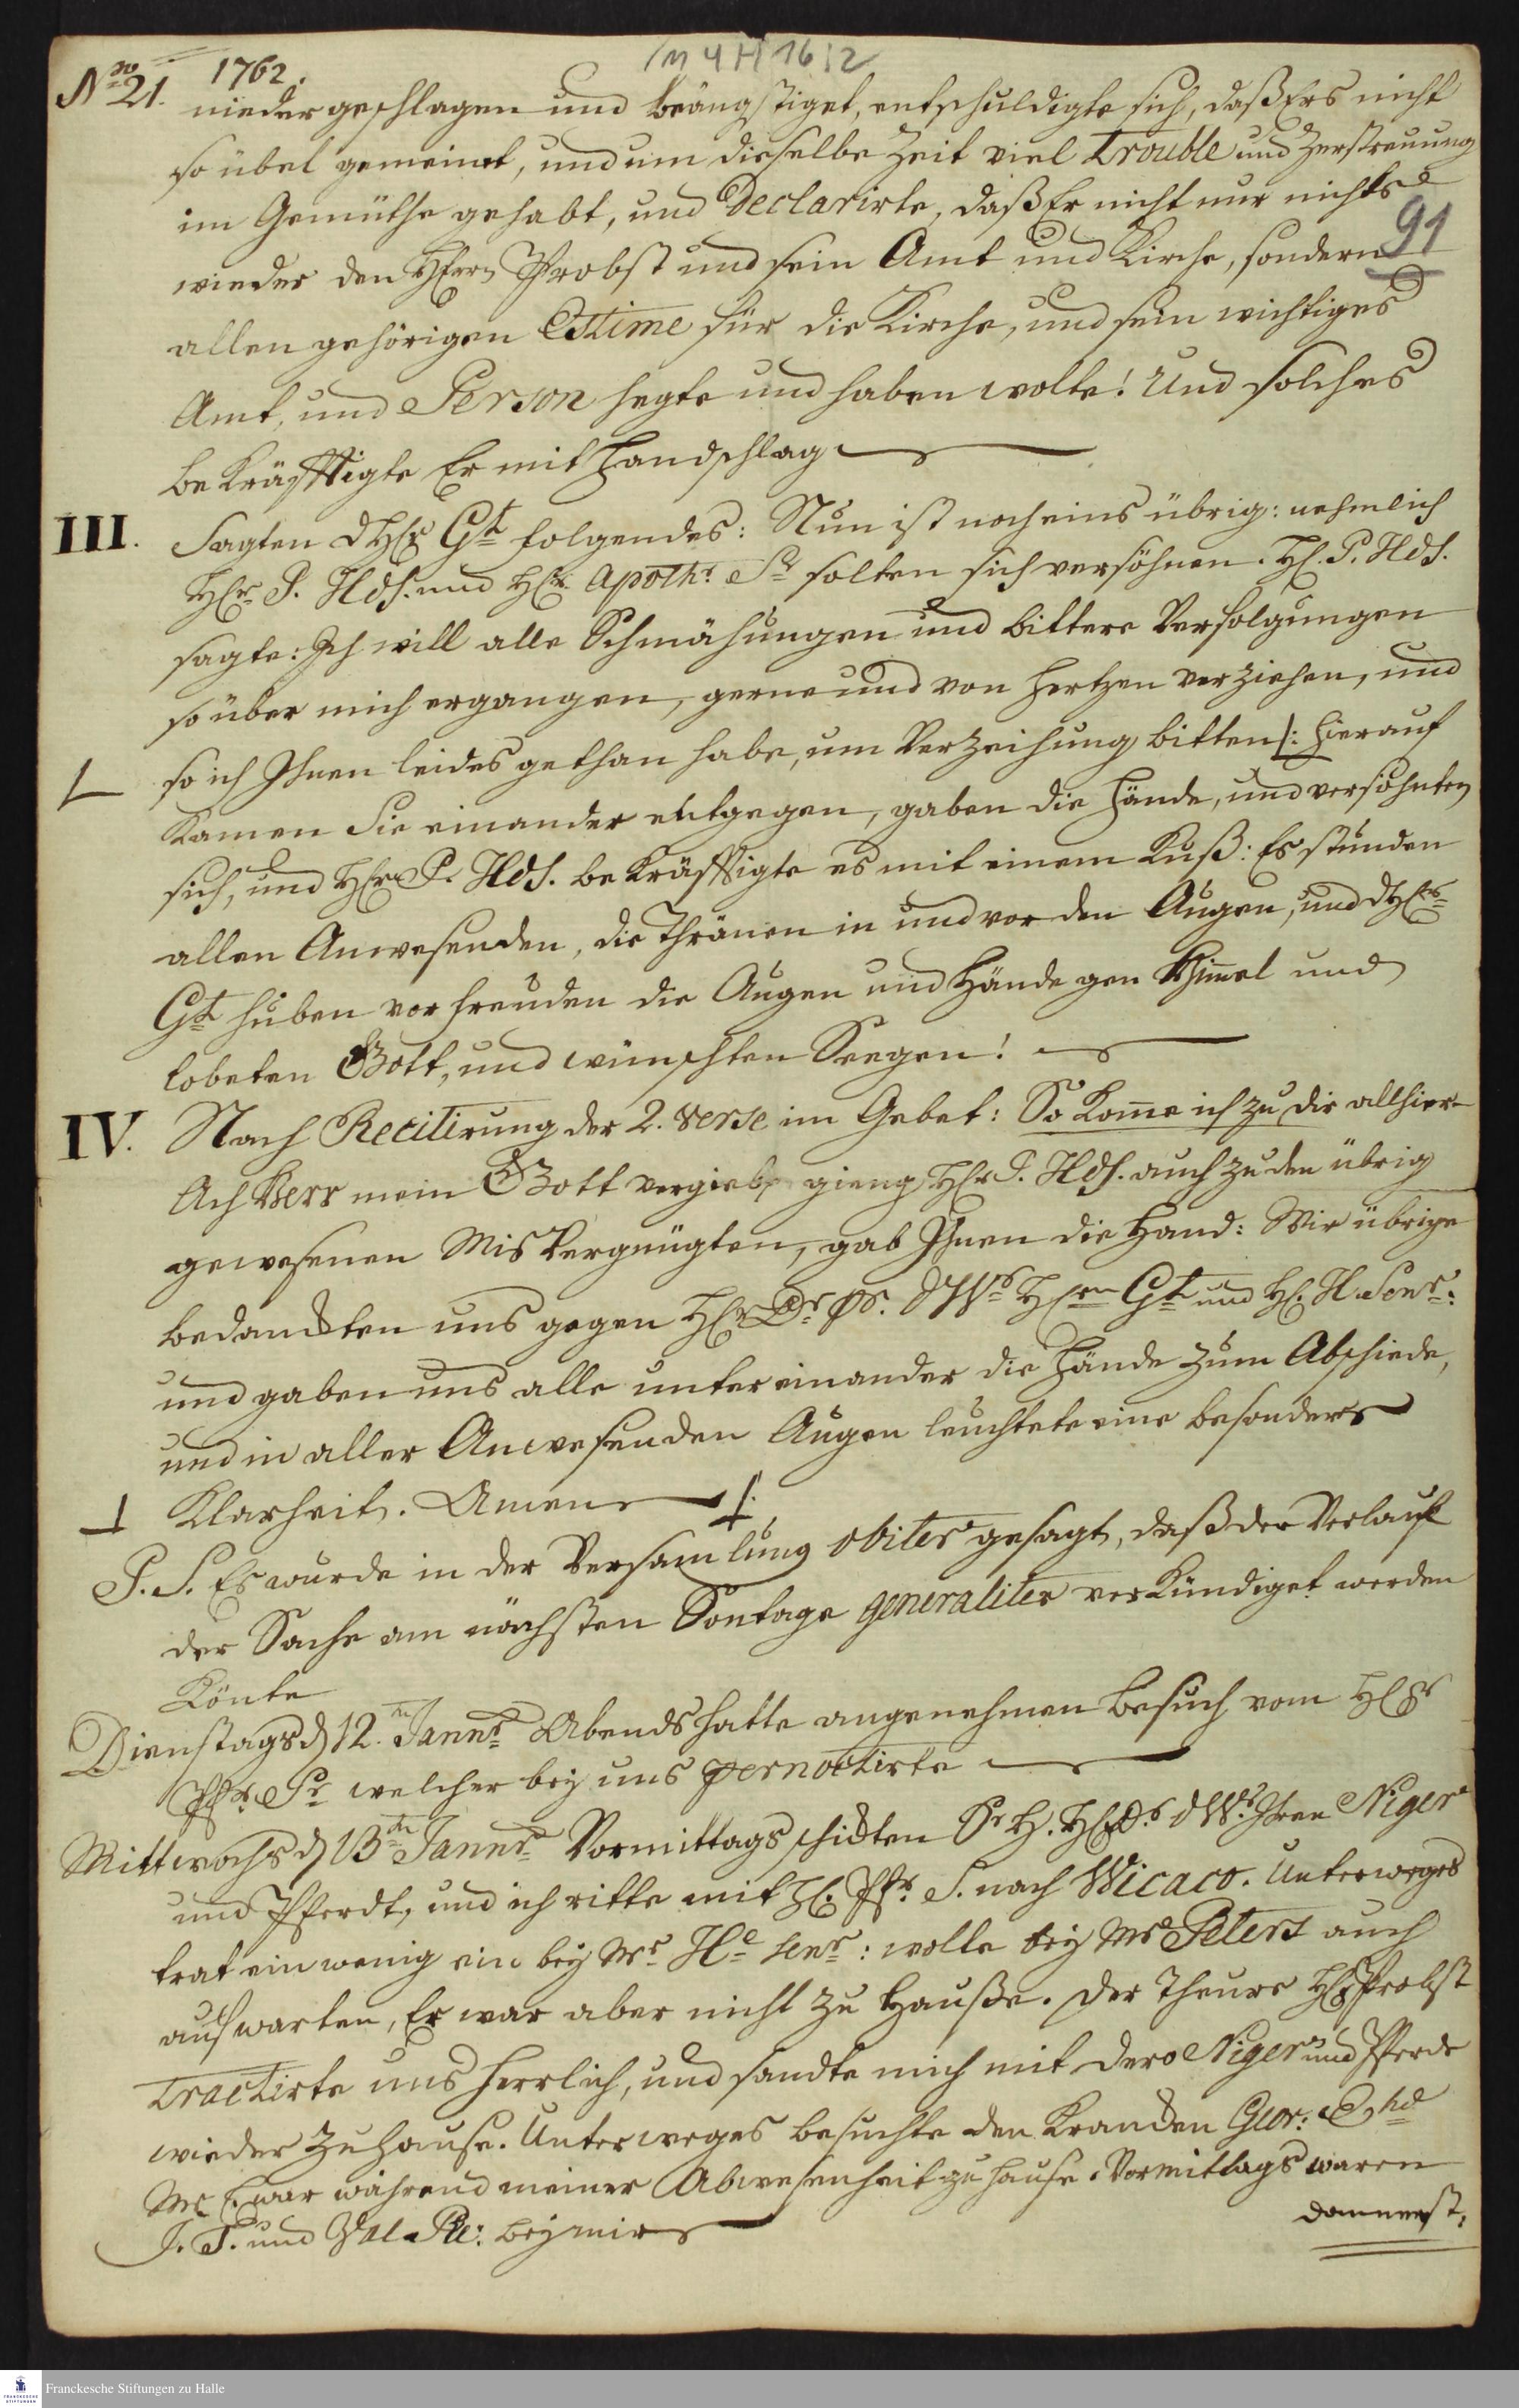 M 4 H 16 : 2
No 21. 1762.
niedergeschlagen und beängstiget, entschuldigte sich, daß Ers nicht
so übel gemeinet, und um dieselbe Zeit viel Trouble und Zerstreuung
im Gemüthe gehabt, und Declarirte, daß Er nicht nur nichts
91
wieder den HErrn Probst und sein Amt und Kirche, sondern
allen gehörigen Estime für die Kirche, und sein wichtiges
Amt, und Person hegte und haben wolte! Und solches
bekräfftigte Er mit Handschlag
III. Sagten d HEr Gt folgendes: Nun ist noch eins übrig: nehmlich
HEr P. Hds. und HEr Apothr. Sr solten sich versöhnen. HE. P. Hds.
sagte: Ich will alle Schmähungen und bittere Verfolgungen
so über mich ergangen, gerne und von Hertzen verziehen, und
so ich Ihnen leides gethan habe, um Verzeihung bitten /: hierauf
Kamen Sie einander entgegen, gaben die Hände, und versöhnten
sich, und HEr P. Hds. bekräfftigte es mit einem Kuß: Es stunden
allen Anwesenden, die Thränen in und vor den Augen, und d HErs
Gt huben vor Freuden die Augen und Hände gen Himel und
lobeten Gott, und wünschten Seegen!
IV. Nach Recitirung der 2. Verse im Gebet: So kome ich zu dir allhier
Ach Herr mein Gott vergieb gieng HEr P. Hds. auch zu den übrig
gewesenen Misvergnügten, gab Ihnen die Hand: Wir übrige
bedanckten uns gegen HEr Dr Pr. d Wr HErn Gt und HE. H. Senr:
und gaben uns alle untereinander die Hände zum Abschiede,
und in aller Anwesenden Augen leuchtete eine besondere
Klarheit. Amen :/
P. S. Es wurde in der Versamlung obiter gesagt, daß der Verlauf
der Sache am nächsten Sontage generaliter verkündiget werden
Könte
Dienstags d 12.ten Jannr Abends hatte angenehmen Besuch vom HE
Pfr. Sr welcher bey uns pernoctirte
Mittwochs d 13ten Jannr Vormittags schickten Sr H. HEr Dr. d Wr. Ihren Niger
und Pferdt, und ich ritte mit HE. Pfr. S. nach Wicaco. Unterweges
trat ein wenig ein bey Mr He senr: wolte bey Mr Peters auch
aufwarten, Er war aber nicht zu Hauße. Der Theure HEr Probst
tractirte uns herrlich, und sandte mich mit dero Niger und Pferde
wieder zu Hause. Unterweges besuchte den Krancken Geor:
Mr E. war während meiner Abwesenheit zu Hause. Vormittags waren
J. T. und Val. Ple: bey mir
Donnerst.
Franckesche Stiftungen zu Halle